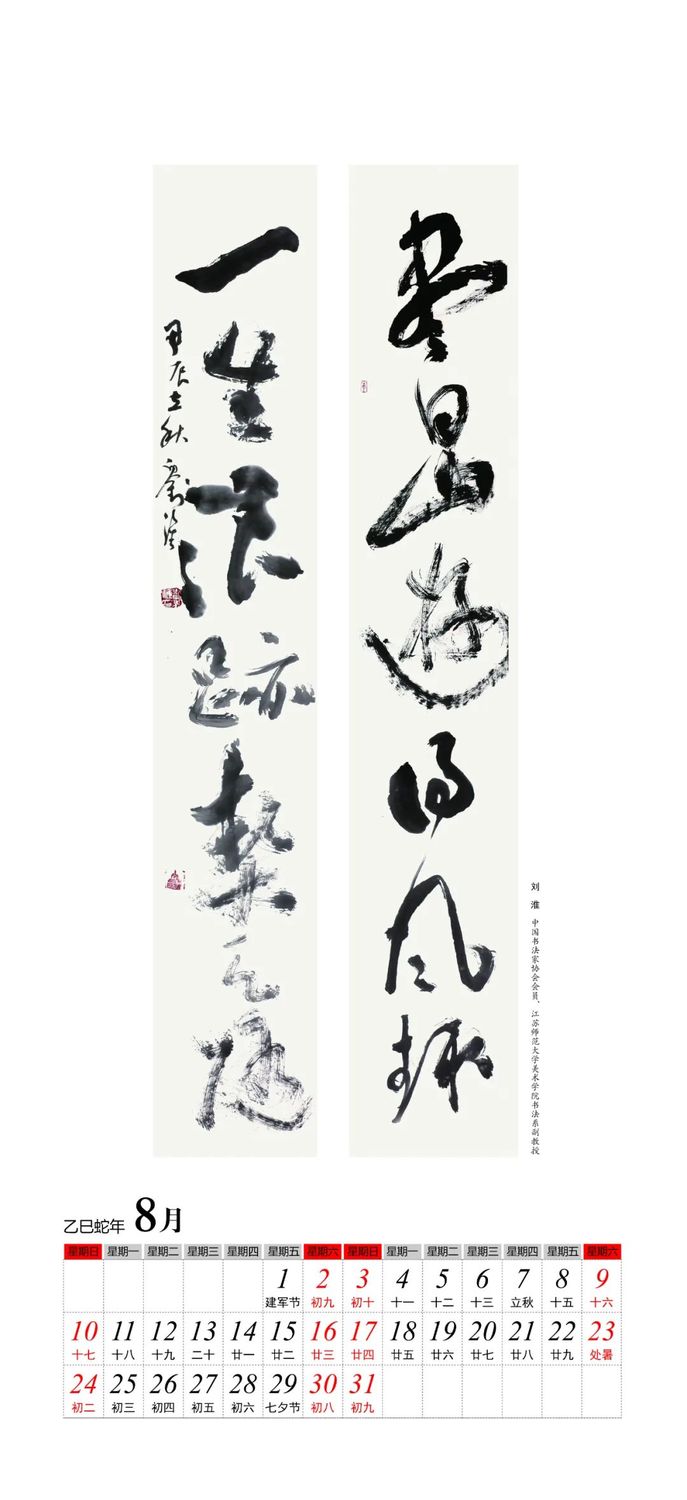 遊得風趣
一生浪跡
甲辰立秋 劉淮
刘 淮 中国书法家协会会员、江苏师范大学美术学院书法系副教授
乙巳蛇年 8月
星期日 星期一 星期二 星期三 星期四 星期五 星期六 星期日 星期一 星期二 星期三 星期四 星期五 星期六
1 2 3 4 5 6 7 8 9
建军节 初九 初十 十一 十二 十三 立秋 十五 十六
10 11 12 13 14 15 16 17 18 19 20 21 22 23
十七 十八 十九 二十 廿一 廿二 廿三 廿四 廿五 廿六 廿七 廿八 廿九 处暑
24 25 26 27 28 29 30 31
初二 初三 初四 初五 初六 七夕节 初八 初九